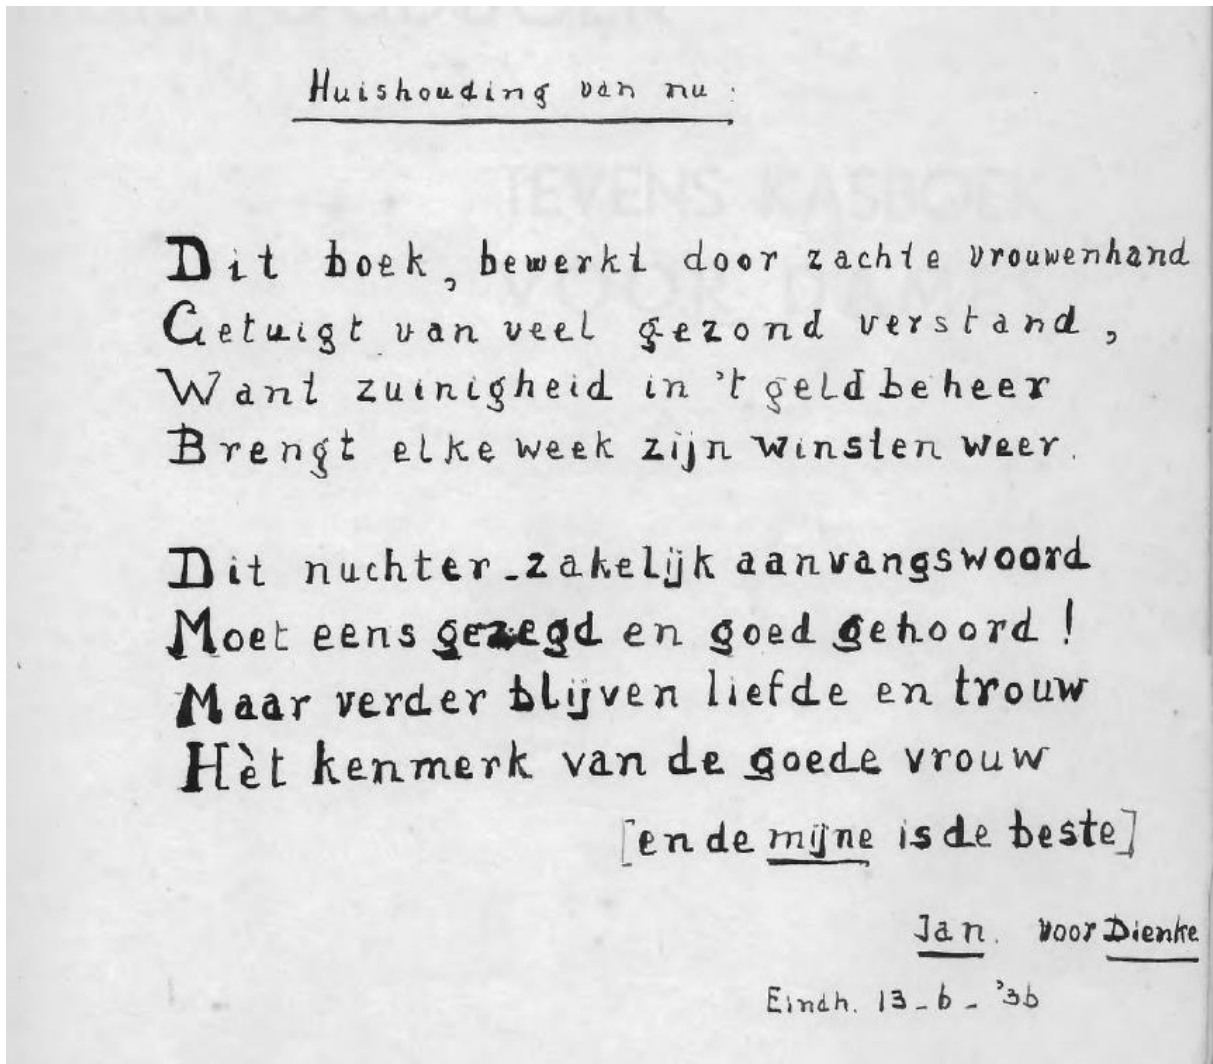 Huishouding van nu:
TEVENS KASBOEK
VOOR DAMES
Dit boek, bewerkt door zachte vrouwenhand
Getuigt van veel gezond verstand,
Want zuinigheid in 't geldbeheer
Brengt elke week zijn winsten weer.
Dit nuchter-zakelijk aanvangswoord
Moet eens gezegd en goed gehoord!
Maar verder blijven liefde en trouw
Hèt kenmerk van de goede vrouw
[en de mijne is de beste]
Jan. voor Dienke
Eindh. 13-6-'36